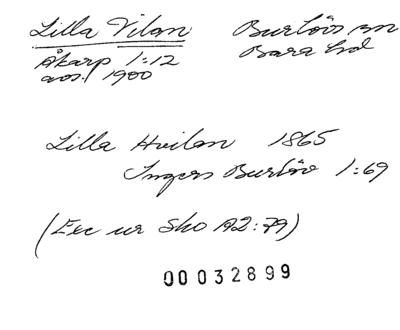 Lilla Vilan Burlövs sn
Åkarp 1:12 Bara hd
avs. 1900
Lilla Hvilan 1865
Ingers Burlöv 1:69
(Exc ur Sko A2:79)
00032899